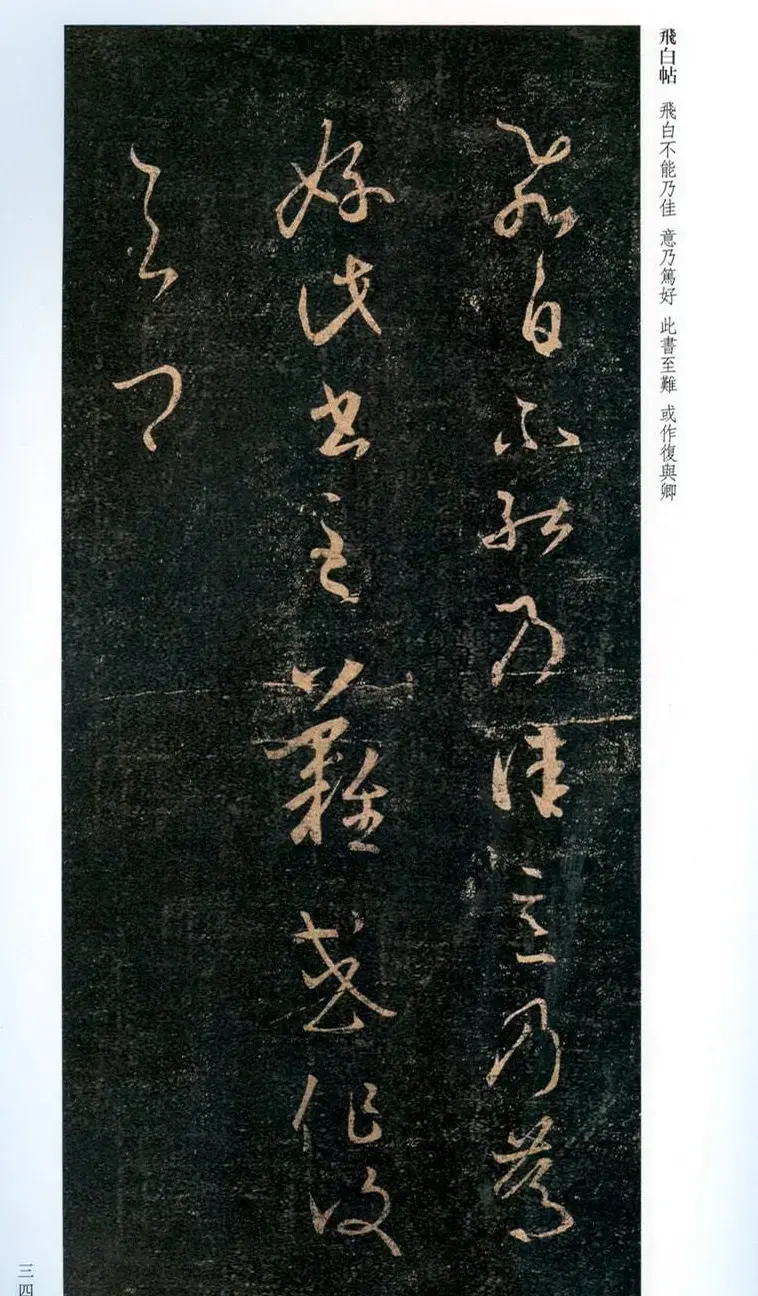 飛白帖 飛白不能乃佳 意乃篤好 此書至難 或作復與卿
飛白不能乃佳意乃篤
好此書至難或作復
與卿
三四